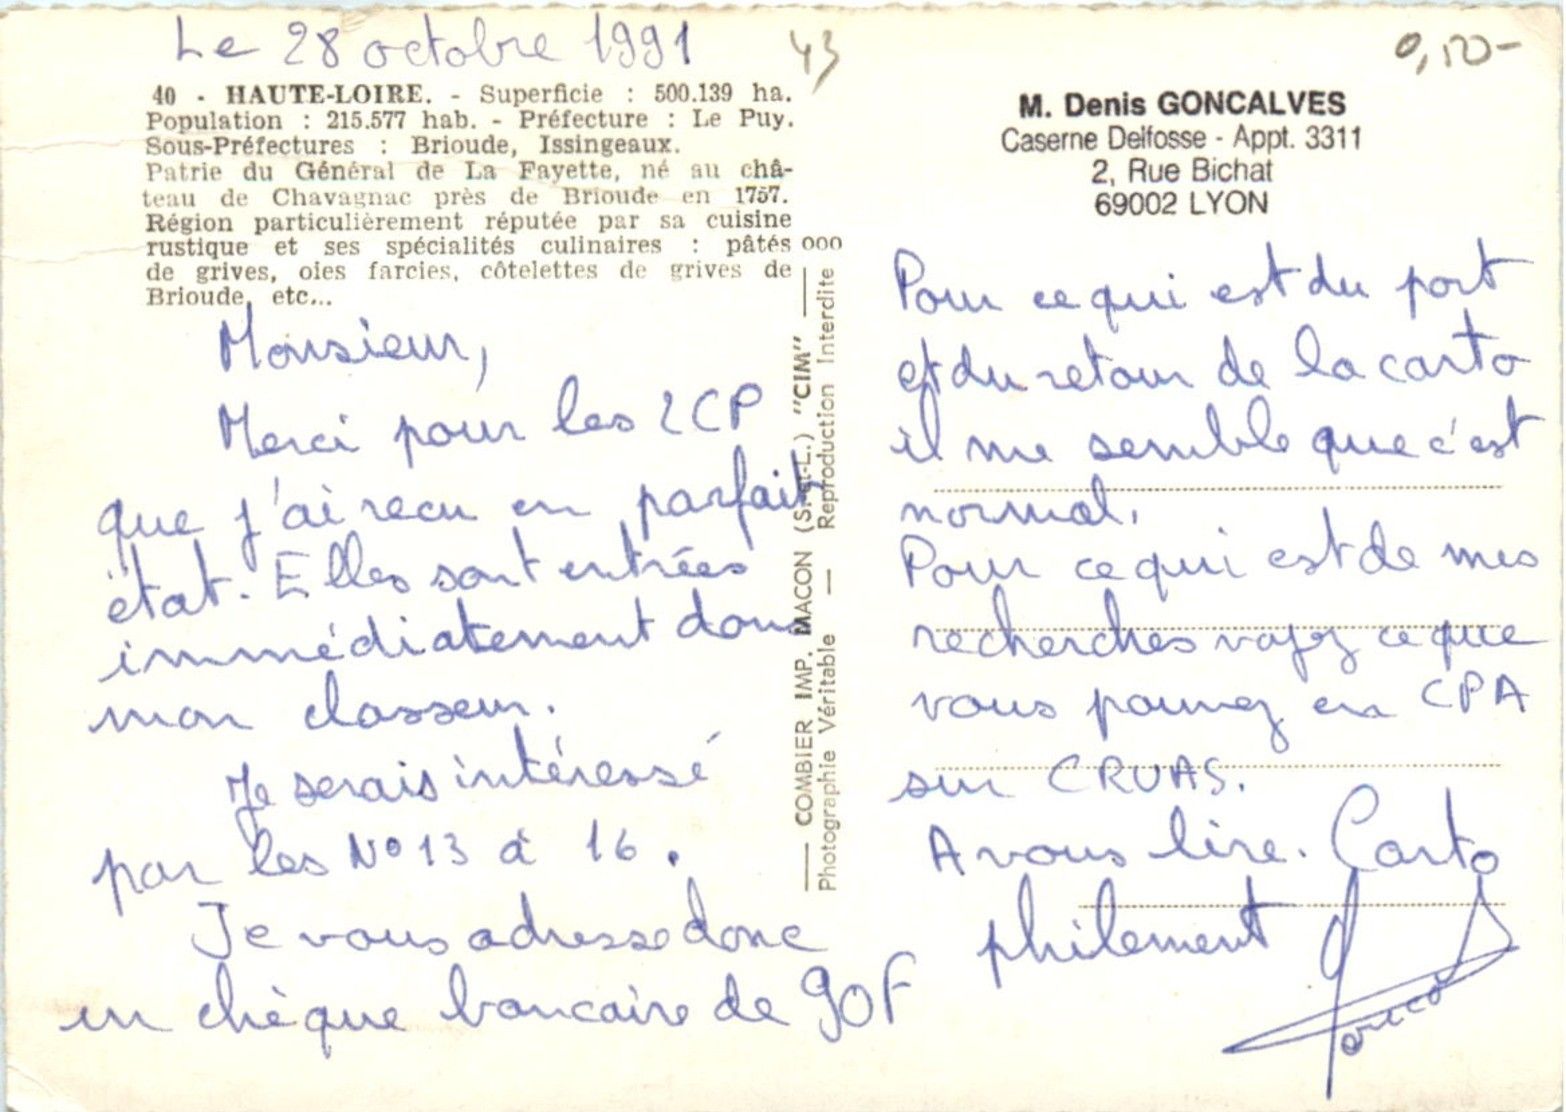 Le 28 octobre 1991
43
40 - HAUTE-LOIRE. - Superficie : 500.139 ha.
Population : 215.577 hab. - Préfecture : Le Puy.
Sous-Préfectures : Brioude, Issingeaux.
Patrie du Général de La Fayette, né au châ-
teau de Chavagnac près de Brioude en 1757.
Région particulièrement réputée par sa cuisine
rustique et ses spécialités culinaires : pâtés
de grives, oies farcies, côtelettes de grives de
Brioude, etc...
Monsieur,
Merci pour les 2CP
que j'ai recu en parfait
état. Elles sont entrées
immédiatement dans
mon classeur.
Je serais intéressé
par les N° 13 à 16.
Je vous adresse donc
un chèque bancaire de 90F
000
— COMBIER IMP. MACON (S.-et-L.) "CIM" —
Photographie Véritable — Reproduction Interdite
M. Denis GONCALVES
Caserne Delfosse - Appt. 3311
2, Rue Bichat
69002 LYON
Pour ce qui est du port
et du retour de la carto
il me semble que c'est
normal.
Pour ce qui est de mes
recherches voyez ce que
vous pouvez en CPA
sur CRUAS.
A vous lire. Carto
philement